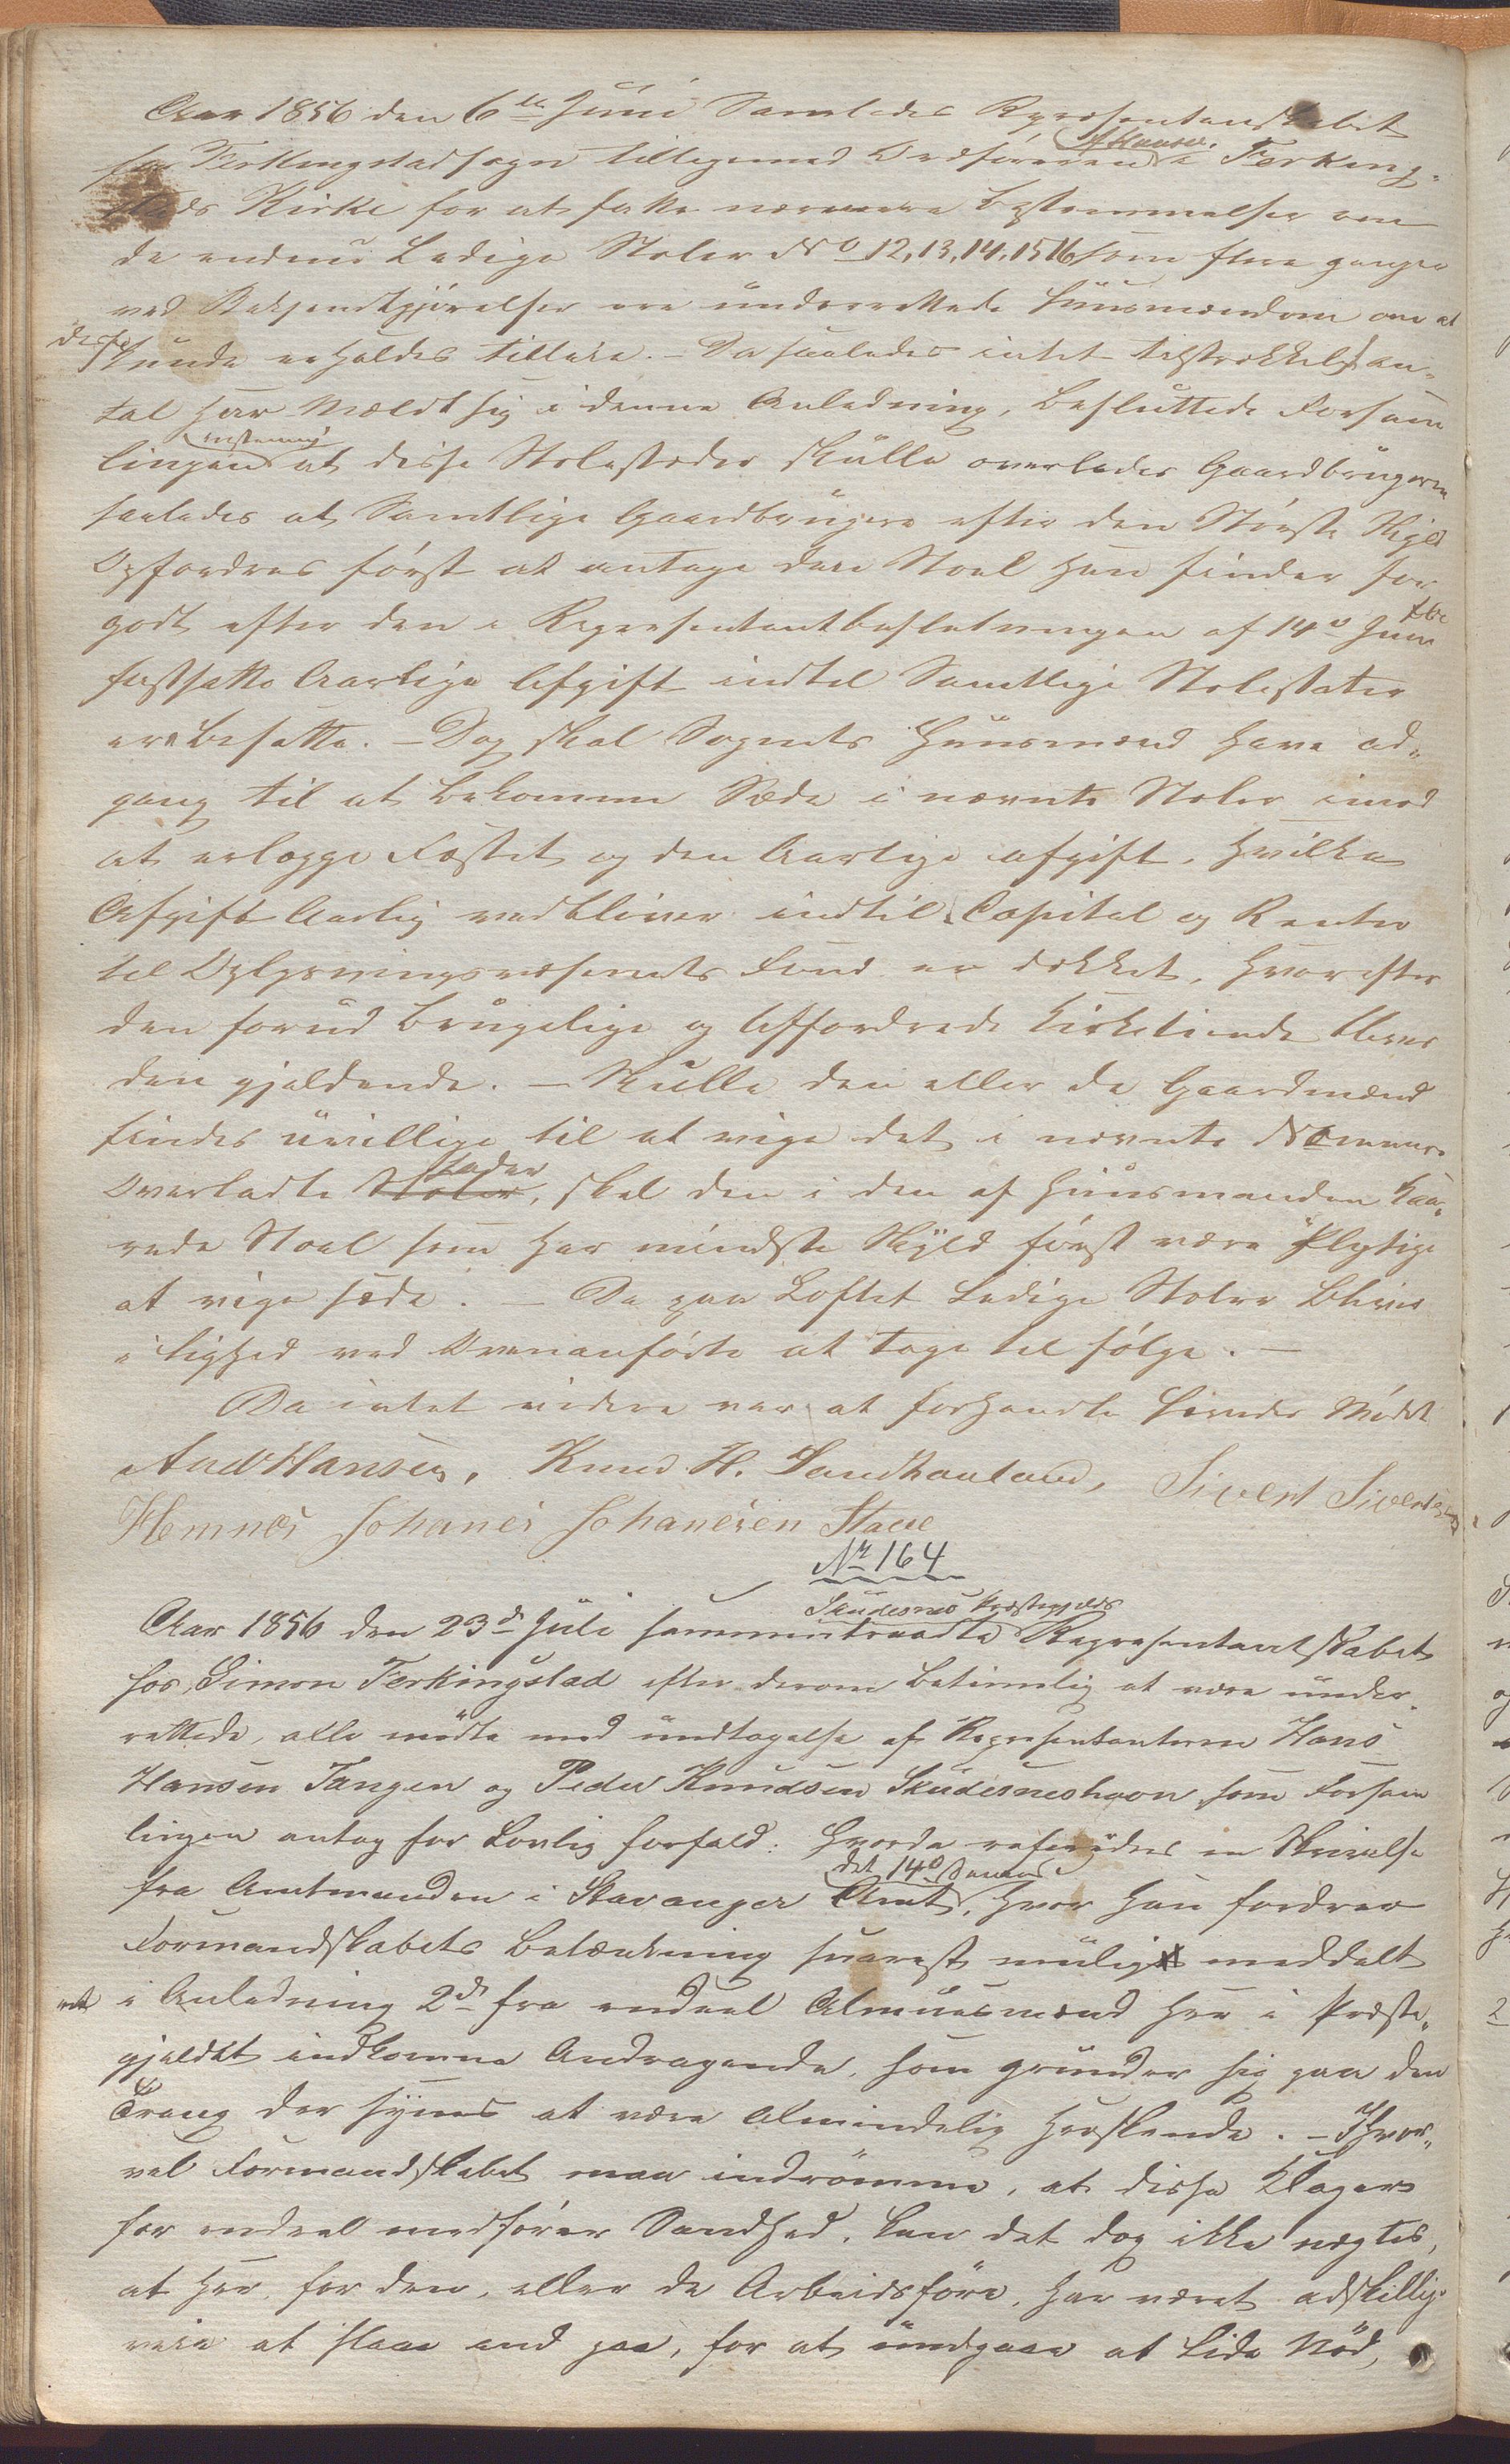 Aar 1856 den 6te Juni Samledes Repræsentandskabet
for Ferkingstad sogn tilligemed Ordføreren A Hansen. i Ferking-
stads Kirke for at fatte nærmere bestemmelser om
de endnu Ledige Stoler No 12, 13, 14, 15 16 som flere gange
ved Bekjendtgjørelser ere underrettede Huusmændene om at
disse kunde erholdes tilleie. – Da saaledes intet tilstrekkelig an-
tal har Meldt sig i denne Anledning, besluttede Forsam
lingen eenstemmig at disse Stolestader skulle overlades Gaardbrugerne
saaledes at Samtlige Gaardbrugere efter den Største Skyld
Opfordres først at antage den Stoel han finder for
godt efter den i Representantbeslutningen af 14de Juni
fastsatte Aarlige Afgift indtil Samtlige Stolestater
ere besatte. – Dog skal Sognets Huusmænd have ad-
gang til at bekomme Sæde i nævnte Stoler imod
at erlægge Fæstet og den Aarlige afgift, hvilken
Afgift Aarlig vedbliver indtil Capital og Renter
til Oplysningsvæsenets Fond er dækket, hvorefter
den forud brugelige og Affordrede Kirketiende bliver
den gjældende. – Skulle den eller de Gaardmænd
findes uvillige til at vige det i nævnte Nommere
Overladte Stoler Stader, skal den i den af Huusmanden Kaa-
rede Stoel som har mindste Skyld først være Pligtige
at vige sæde. – De paa Loftet Ledige Stoler Blive
i lighed med Ovenanførte at tage til følge. –
Da intet videre var at forhandle hævedes Mødet
And Hansen, Knud H. Sandhaaland, Sivert Sivertsen
Hemnes Johanes Johanesen Stave
Nr 164
Aar 1856 den 23de Juli sammentraadte Skudesnes Præstegjelds Repræsentantskabet
hos Simon Ferkingstad efter derom betimelig at være under-
rettede, alle mødte med undtagelse af Repræsentanterne Hans
Hansen Tangen og Peder Knudsen Skudesneshavn som Forsam
lingen antog for Lovlig forfald. Hvorda refereredes en Skrivelse
fra Amtmanden i Stavanger Amt, det 14de hvor han fordrer
Formandskabets Betænkning snarest mulig meddelt
i Anledning 2de fra endeel Almuesmænd her i Præste-
gjeldet indkomne Andragende, som grunder sig paa den
Trang der synes at være Almindelig herskende. – Ihvor-
vel Formandskabet maa indrømme, at disse Klager
for endeel medfører Sandhed, kan det dog ikke negtes,
at her, for den, eller de Arbeidsføre, har været adskillig
veie at slaae ind paa, for at undgaae at Lide Nød,